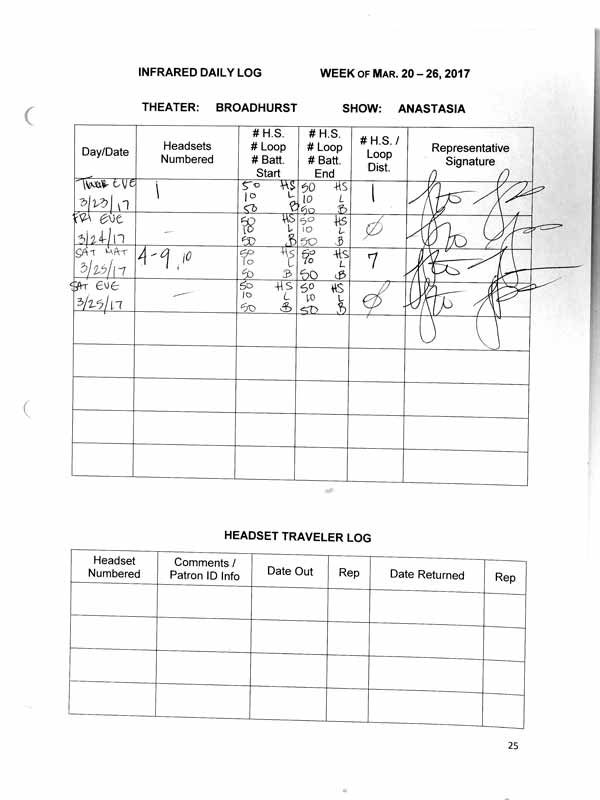 INFRARED DAILY LOG WEEK OF MAR. 20 – 26, 2017
THEATER: BROADHURST SHOW: ANASTASIA
Day/Date Headsets Numbered # H.S. # Loop # Batt. Start # H.S. # Loop # Batt. End # H.S. / Loop Dist. Representative Signature
THUR EVE 1 50 HS 50 HS 1
3/23/17 10 L 10 L
50 B 50 B
FRI EVE – 50 HS 50 HS Ø
3/24/17 10 L 10 L
50 B 50 B
SAT MAT 4-9, 10 50 HS 50 HS 7
3/25/17 10 L 10 L
50 B 50 B
SAT EVE – 50 HS 50 HS Ø
3/25/17 10 L 10 L
50 B 50 B
HEADSET TRAVELER LOG
Headset Numbered Comments / Patron ID Info Date Out Rep Date Returned Rep
25